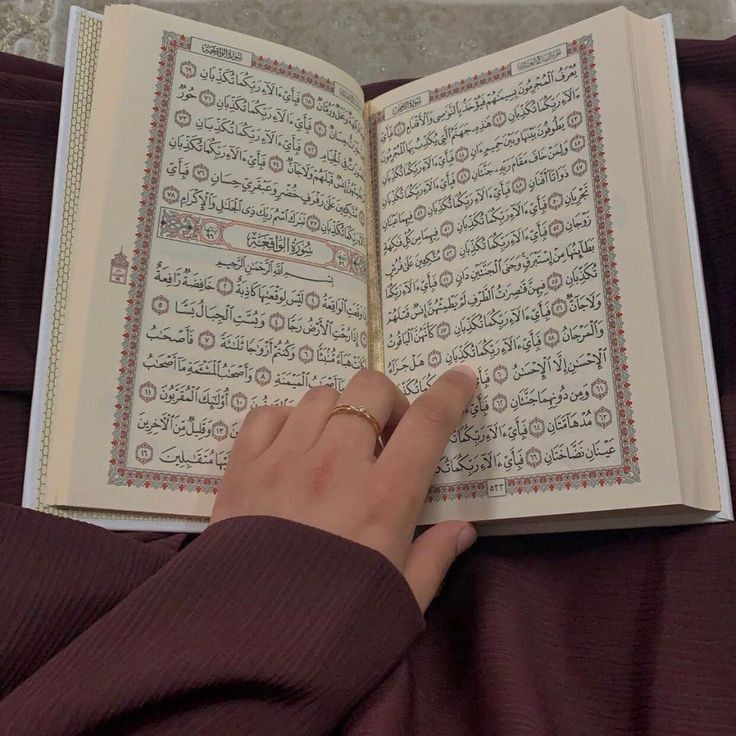 سُورَةُ الرَّحْمٰن
يُعْرَفُ الْمُجْرِمُونَ بِسِيمَٰهُمْ فَيُؤْخَذُ بِالنَّوَٰصِى وَالْأَقْدَامِ ٤١ فَبِأَىِّ
ءَالَآءِ رَبِّكُمَا تُكَذِّبَانِ ٤٢ هَٰذِهِۦ جَهَنَّمُ الَّتِى يُكَذِّبُ بِهَا الْمُجْرِمُونَ
٤٣ يَطُوفُونَ بَيْنَهَا وَبَيْنَ حَمِيمٍ ءَانٍ ٤٤ فَبِأَىِّ ءَالَآءِ رَبِّكُمَا تُكَذِّبَانِ
٤٥ وَلِمَنْ خَافَ مَقَامَ رَبِّهِۦ جَنَّتَانِ ٤٦ فَبِأَىِّ ءَالَآءِ رَبِّكُمَا تُكَذِّبَانِ
٤٧ ذَوَاتَآ أَفْنَانٍ ٤٨ فَبِأَىِّ ءَالَآءِ رَبِّكُمَا تُكَذِّبَانِ ٤٩ فِيهِمَا عَيْنَانِ
تَجْرِيَانِ ٥٠ فَبِأَىِّ ءَالَآءِ رَبِّكُمَا تُكَذِّبَانِ ٥١ فِيهِمَا مِن كُلِّ فَٰكِهَةٍ
زَوْجَانِ ٥٢ فَبِأَىِّ ءَالَآءِ رَبِّكُمَا تُكَذِّبَانِ ٥٣ مُتَّكِـِٔينَ عَلَىٰ فُرُشٍ
بَطَآئِنُهَا مِنْ إِسْتَبْرَقٍ وَجَنَى الْجَنَّتَيْنِ دَانٍ ٥٤ فَبِأَىِّ ءَالَآءِ رَبِّكُمَا
تُكَذِّبَانِ ٥٥ فِيهِنَّ قَٰصِرَٰتُ الطَّرْفِ لَمْ يَطْمِثْهُنَّ إِنسٌ قَبْلَهُمْ
وَلَا جَآنٌّ ٥٦ فَبِأَىِّ ءَالَآءِ رَبِّكُمَا تُكَذِّبَانِ ٥٧ كَأَنَّهُنَّ الْيَاقُوتُ
وَالْمَرْجَانُ ٥٨ فَبِأَىِّ ءَالَآءِ رَبِّكُمَا تُكَذِّبَانِ ٥٩ هَلْ جَزَآءُ
الْإِحْسَٰنِ إِلَّا الْإِحْسَٰنُ ٦٠ فَبِأَىِّ
٦١ وَمِن دُونِهِمَا جَنَّتَانِ ٦٢ فَبِأَىِّ
٦٣ مُدْهَآمَّتَانِ ٦٤ فَبِأَىِّ ءَالَآءِ رَبِّكُمَا
عَيْنَانِ نَضَّاخَتَانِ ٦٦ فَبِأَىِّ ءَالَآءِ رَبِّكُمَا
٥٣٣
سُورَةُ الْوَاقِعَة
وَنَخْلٌ وَرُمَّانٌ ٦٨ فَبِأَىِّ ءَالَآءِ رَبِّكُمَا تُكَذِّبَانِ ٦٩
فَبِأَىِّ ءَالَآءِ رَبِّكُمَا تُكَذِّبَانِ ٧١ حُورٌ
فِى الْخِيَامِ ٧٢ فَبِأَىِّ ءَالَآءِ رَبِّكُمَا تُكَذِّبَانِ ٧٣
قَبْلَهُمْ وَلَا جَآنٌّ ٧٤ فَبِأَىِّ ءَالَآءِ رَبِّكُمَا تُكَذِّبَانِ ٧٥
مُتَّكِـِٔينَ عَلَىٰ رَفْرَفٍ خُضْرٍ وَعَبْقَرِىٍّ حِسَانٍ ٧٦ فَبِأَىِّ
رَبِّكُمَا تُكَذِّبَانِ ٧٧ تَبَٰرَكَ اسْمُ رَبِّكَ ذِى الْجَلَٰلِ وَالْإِكْرَامِ ٧٨
سُورَةُ الْوَاقِعَةِ
بِسْمِ اللَّهِ الرَّحْمَٰنِ الرَّحِيمِ
وَقَعَتِ الْوَاقِعَةُ ١ لَيْسَ لِوَقْعَتِهَا كَاذِبَةٌ ٢ خَافِضَةٌ رَّافِعَةٌ
إِذَا رُجَّتِ الْأَرْضُ رَجًّا ٤ وَبُسَّتِ الْجِبَالُ بَسًّا ٥
هَبَآءً مُّنۢبَثًّا ٦ وَكُنتُمْ أَزْوَٰجًا ثَلَٰثَةً ٧ فَأَصْحَٰبُ
أَصْحَٰبُ الْمَيْمَنَةِ ٨ وَأَصْحَٰبُ الْمَشْـَٔمَةِ مَآ أَصْحَٰبُ
أُو۟لَٰٓئِكَ الْمُقَرَّبُونَ ١١
١٣ وَقَلِيلٌ مِّنَ الْءَاخِرِينَ
مُتَقَٰبِلِينَ ١٦